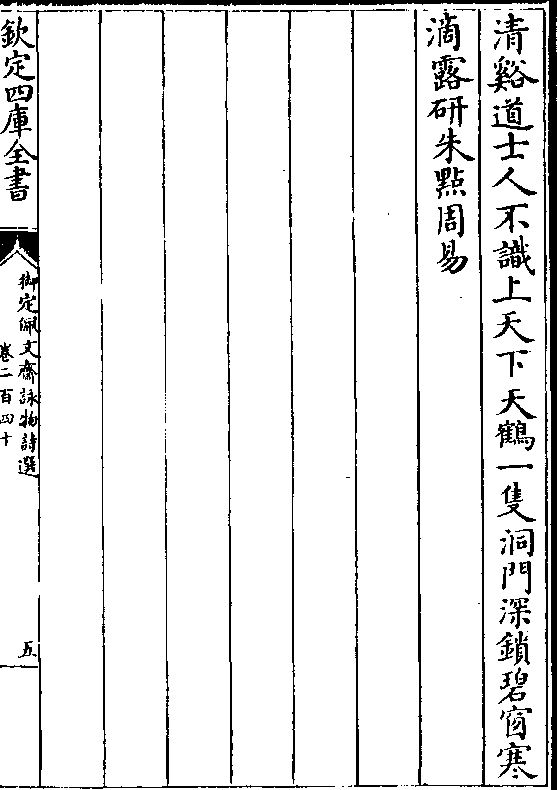 清谿道士人不識上天下天鶴一隻洞門深鎖碧窗寒
滴露研朱點周易
欽定四庫全書
御定佩文齋詠物詩選
卷二百四十
五